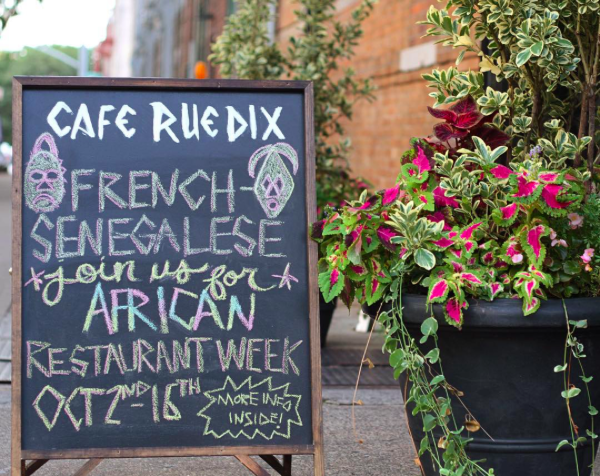 CAFE RUEDIX
FRENCH-
SENEGALESE
join us for
AFRICAN
RESTAURANT WEEK
OCT 2ND-16TH
MORE INFO
INSIDE!